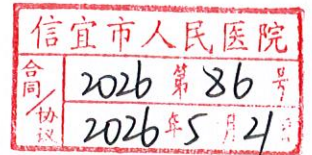 信宜市人民医院
合同/协议
2026 第 86 号
2026 年 5 月 21 日